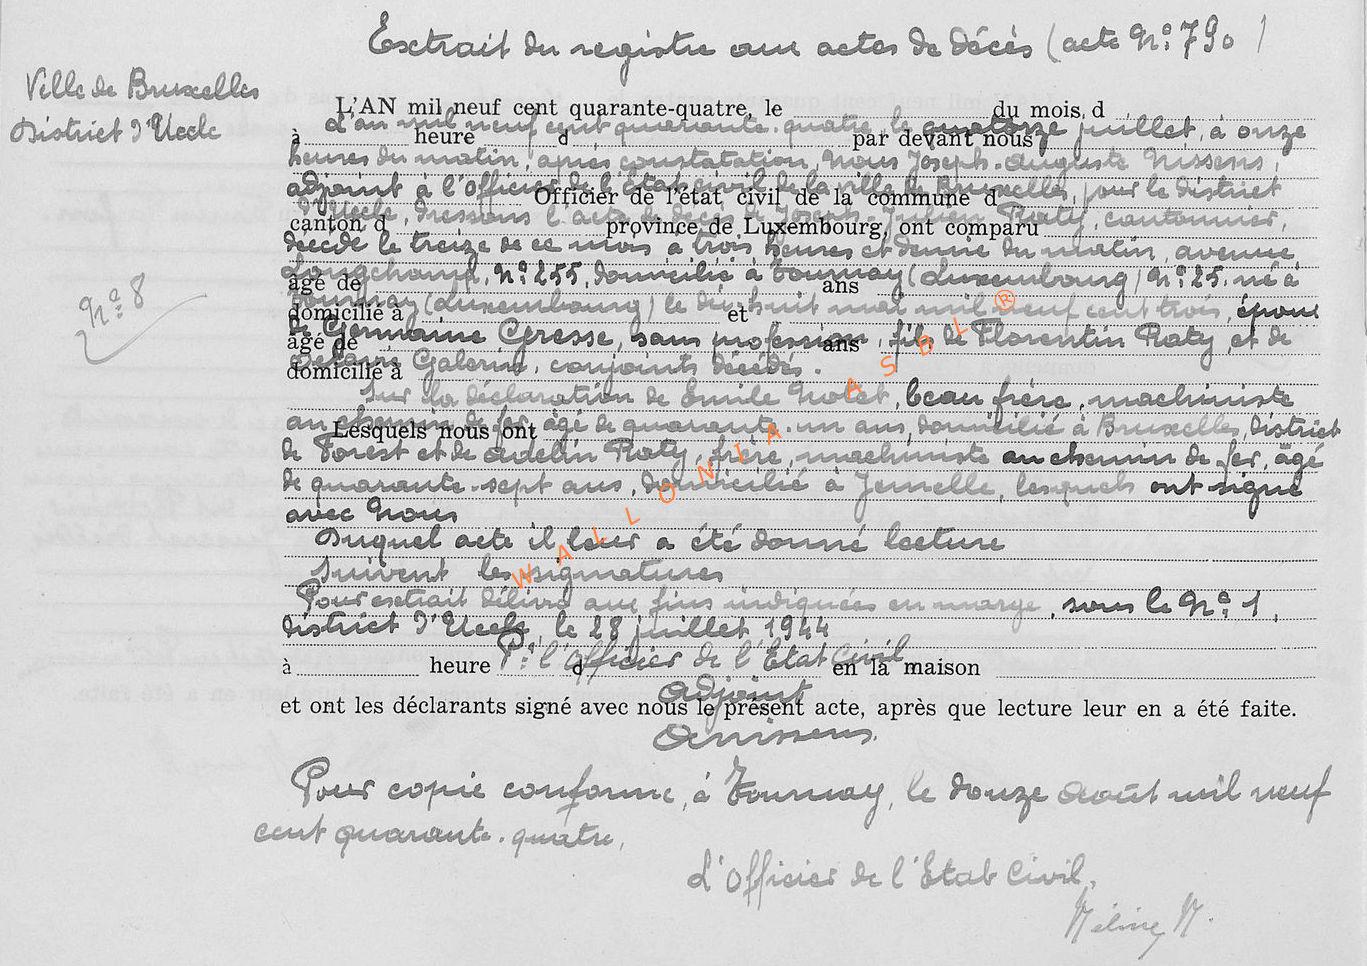 Extrait du registre aux actes de décès (acte N° 790)
Ville de Bruxelles
District d'Uccle
L'AN mil neuf cent quarante-quatre, le du mois d
L'an mil neuf cent quarante-quatre le quatorze juillet, à onze
à heure d par devant nous
heures du matin, après constatation, Nous Joseph-Auguste Nissens,
adjoint à l'officier de l'Etat civil de la ville de Bruxelles, pour le district
Officier de l'état civil de la commune d
d'Uccle, dressons l'acte de décès de Joseph-Julien Raty, cantonnier,
canton d province de Luxembourg, ont comparu
décédé le treize de ce mois à trois heures et demie du matin, avenue
Longchamp, N° 255, domicilié à Tournay (Luxembourg) N° 25, né à
âgé de ans
Tournay (Luxembourg) le dix-huit mai mil neuf cent trois, époux
domicilié à et
de Germaine Gresse, sans profession, fils de Florentin Raty, et de
âgé de ans
Galerin, conjoints décédés.
domicilié à
Sur la déclaration de Emile beau frère, machiniste
au chemin de fer, âgé de quarante-un ans, domicilié à Bruxelles, district
Lesquels nous ont
de Forest et de Adelin Raty, frère, machiniste au chemin de fer, âgé
de quarante-sept ans, domicilié à Jemelle, lesquels ont signé
avec Nous
Duquel acte il leur a été donné lecture
Suivent les signatures
Pour extrait délivré aux fins indiquées en marge, sous le N° 1,
district d'Uccle, le 28 juillet 1944
Pr l'Officier de l'Etat Civil
à heure d en la maison
adjoint
et ont les déclarants signé avec nous le présent acte, après que lecture leur en a été faite.
Nissens.
N° 8
Pour copie conforme, à Tournay, le douze août mil neuf
cent quarante-quatre,
L'Officier de l'Etat Civil,
WALLONIA ASBL ®